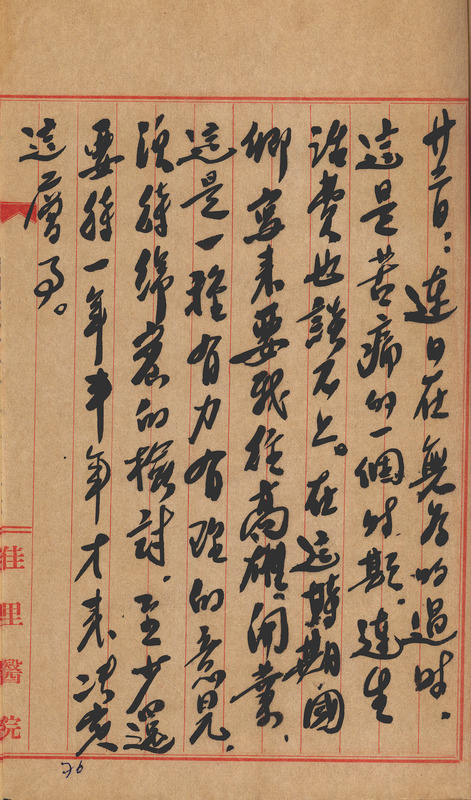 廿二日：連日在無為的過時，
這是苦痛的一個時期。連生
活費也談不上。在這時期國
卿寫來要我往高雄開業，
這是一種有力有理的意見，
須待綿密的檢討，至少還
要待一年半年才来決定
這層事。
佳里醫院
76